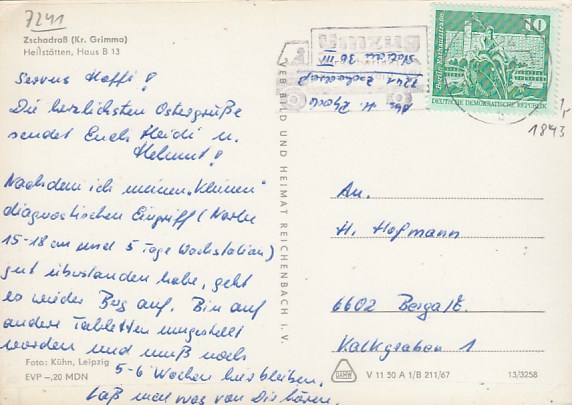 7241
Zschadraß (Kr. Grimma)
Heilstätten, Haus B 13
Servus Hoffi!
Die herzlichsten Ostergrüße
sendet Euch Heidi u.
Helmut!
Nachdem ich meinen „kleinen"
diagnostischen Eingriff (Narbe
15-18 cm und 5 Tage Wachstation)
gut überstanden habe, geht
es wieder Berg auf. Bin auf
andere Tabletten umgestellt
worden und muß noch
5-6 Wochen hierbleiben.
Laß mal was von Dir hören.
Foto: Kühn, Leipzig
EVP -,20 MDN
VEB BILD UND HEIMAT REICHENBACH I. V.
Abs. H.
7241 Zschadraß
Station 36 III
10
Berlin, Neptunbrunnen
DEUTSCHE DEMOKRATISCHE REPUBLIK
1,-
1843
An.
H. Hofmann
6602 Berga/E.
Kalkgraben 1
V 11 50 A 1/B 211/67
13/3258